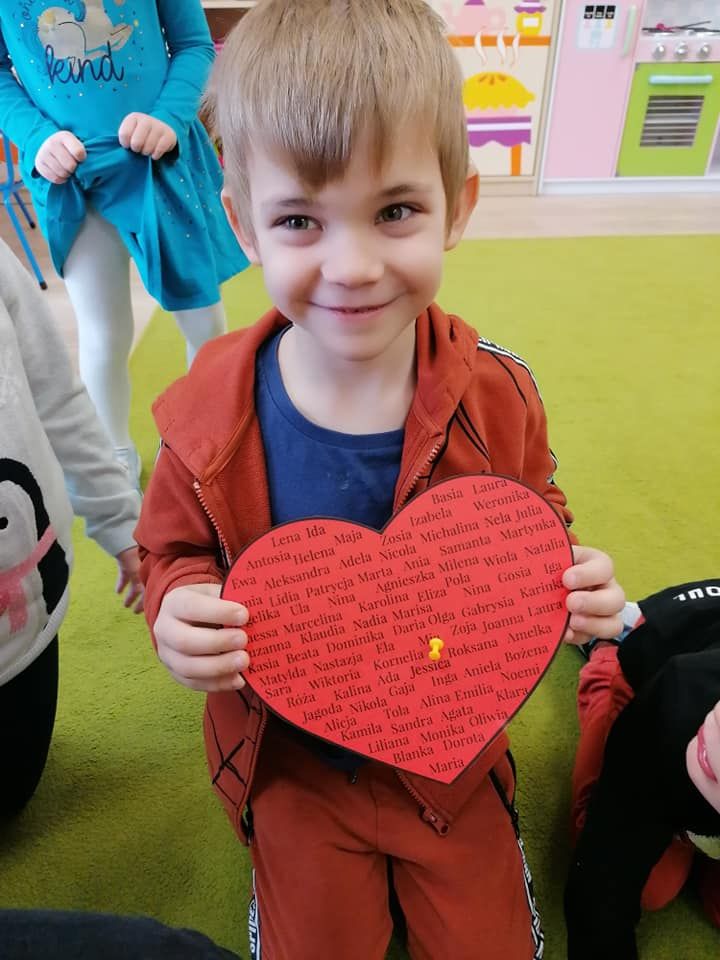 kind
Basia Laura
Lena Ida Maja Zosia Izabela Weronika
Antosia Helena Adela Nicola Michalina Nela Julia
Ewa Aleksandra Marta Ania Samanta Martynka
Lidia Patrycja Agnieszka Milena Wiola Natalia
Ula Nina Karolina Eliza Pola Nina Gosia Iga
Marcelina Nadia Marisa Olga Gabrysia
Klaudia Daria Zoja Joanna Laura
Kasia Beata Dominika Ela Roksana Amelka
Matylda Nastazja Kornelia Jessica Aniela Bożena
Sara Wiktoria Ada Inga Noemi
Róża Kalina Gaja Alina Emilia Klara
Jagoda Nikola Tola Agata
Alicja Sandra Monika Oliwia
Kamila Dorota
Liliana
Blanka
Maria